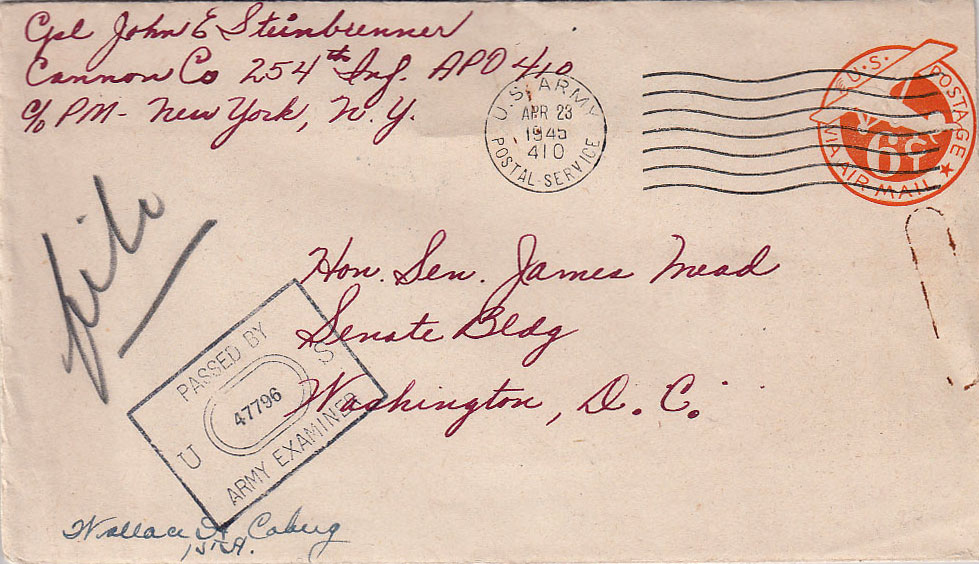 Cpl John E Steinbrenner
Cannon Co 254th Inf. APO 410
c/o PM - New York, N.Y.
U.S. ARMY
APR 23
1945
410
POSTAL SERVICE
U.S. POSTAGE
6¢
VIA AIR MAIL
file
Hon. Sen. James Mead
Senate Bldg
Washington, D.C.
PASSED BY
U 47796 S
ARMY EXAMINER
Wallace